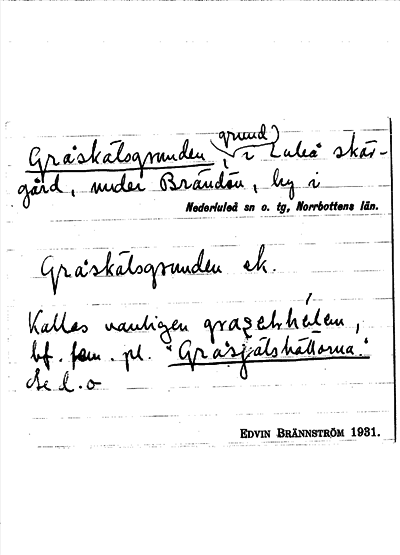 Gråskälsgrunden, grund) i Luleå skär-
gård, under Brändön, by i
Nederluleå sn o. tg, Norrbottens län.
Gråskälsgrunden ek.
Kallas vanligen
bf. fem. pl. "Gråsjälshällorna."
Se l. o
EDVIN BRÄNNSTRÖM 1931.